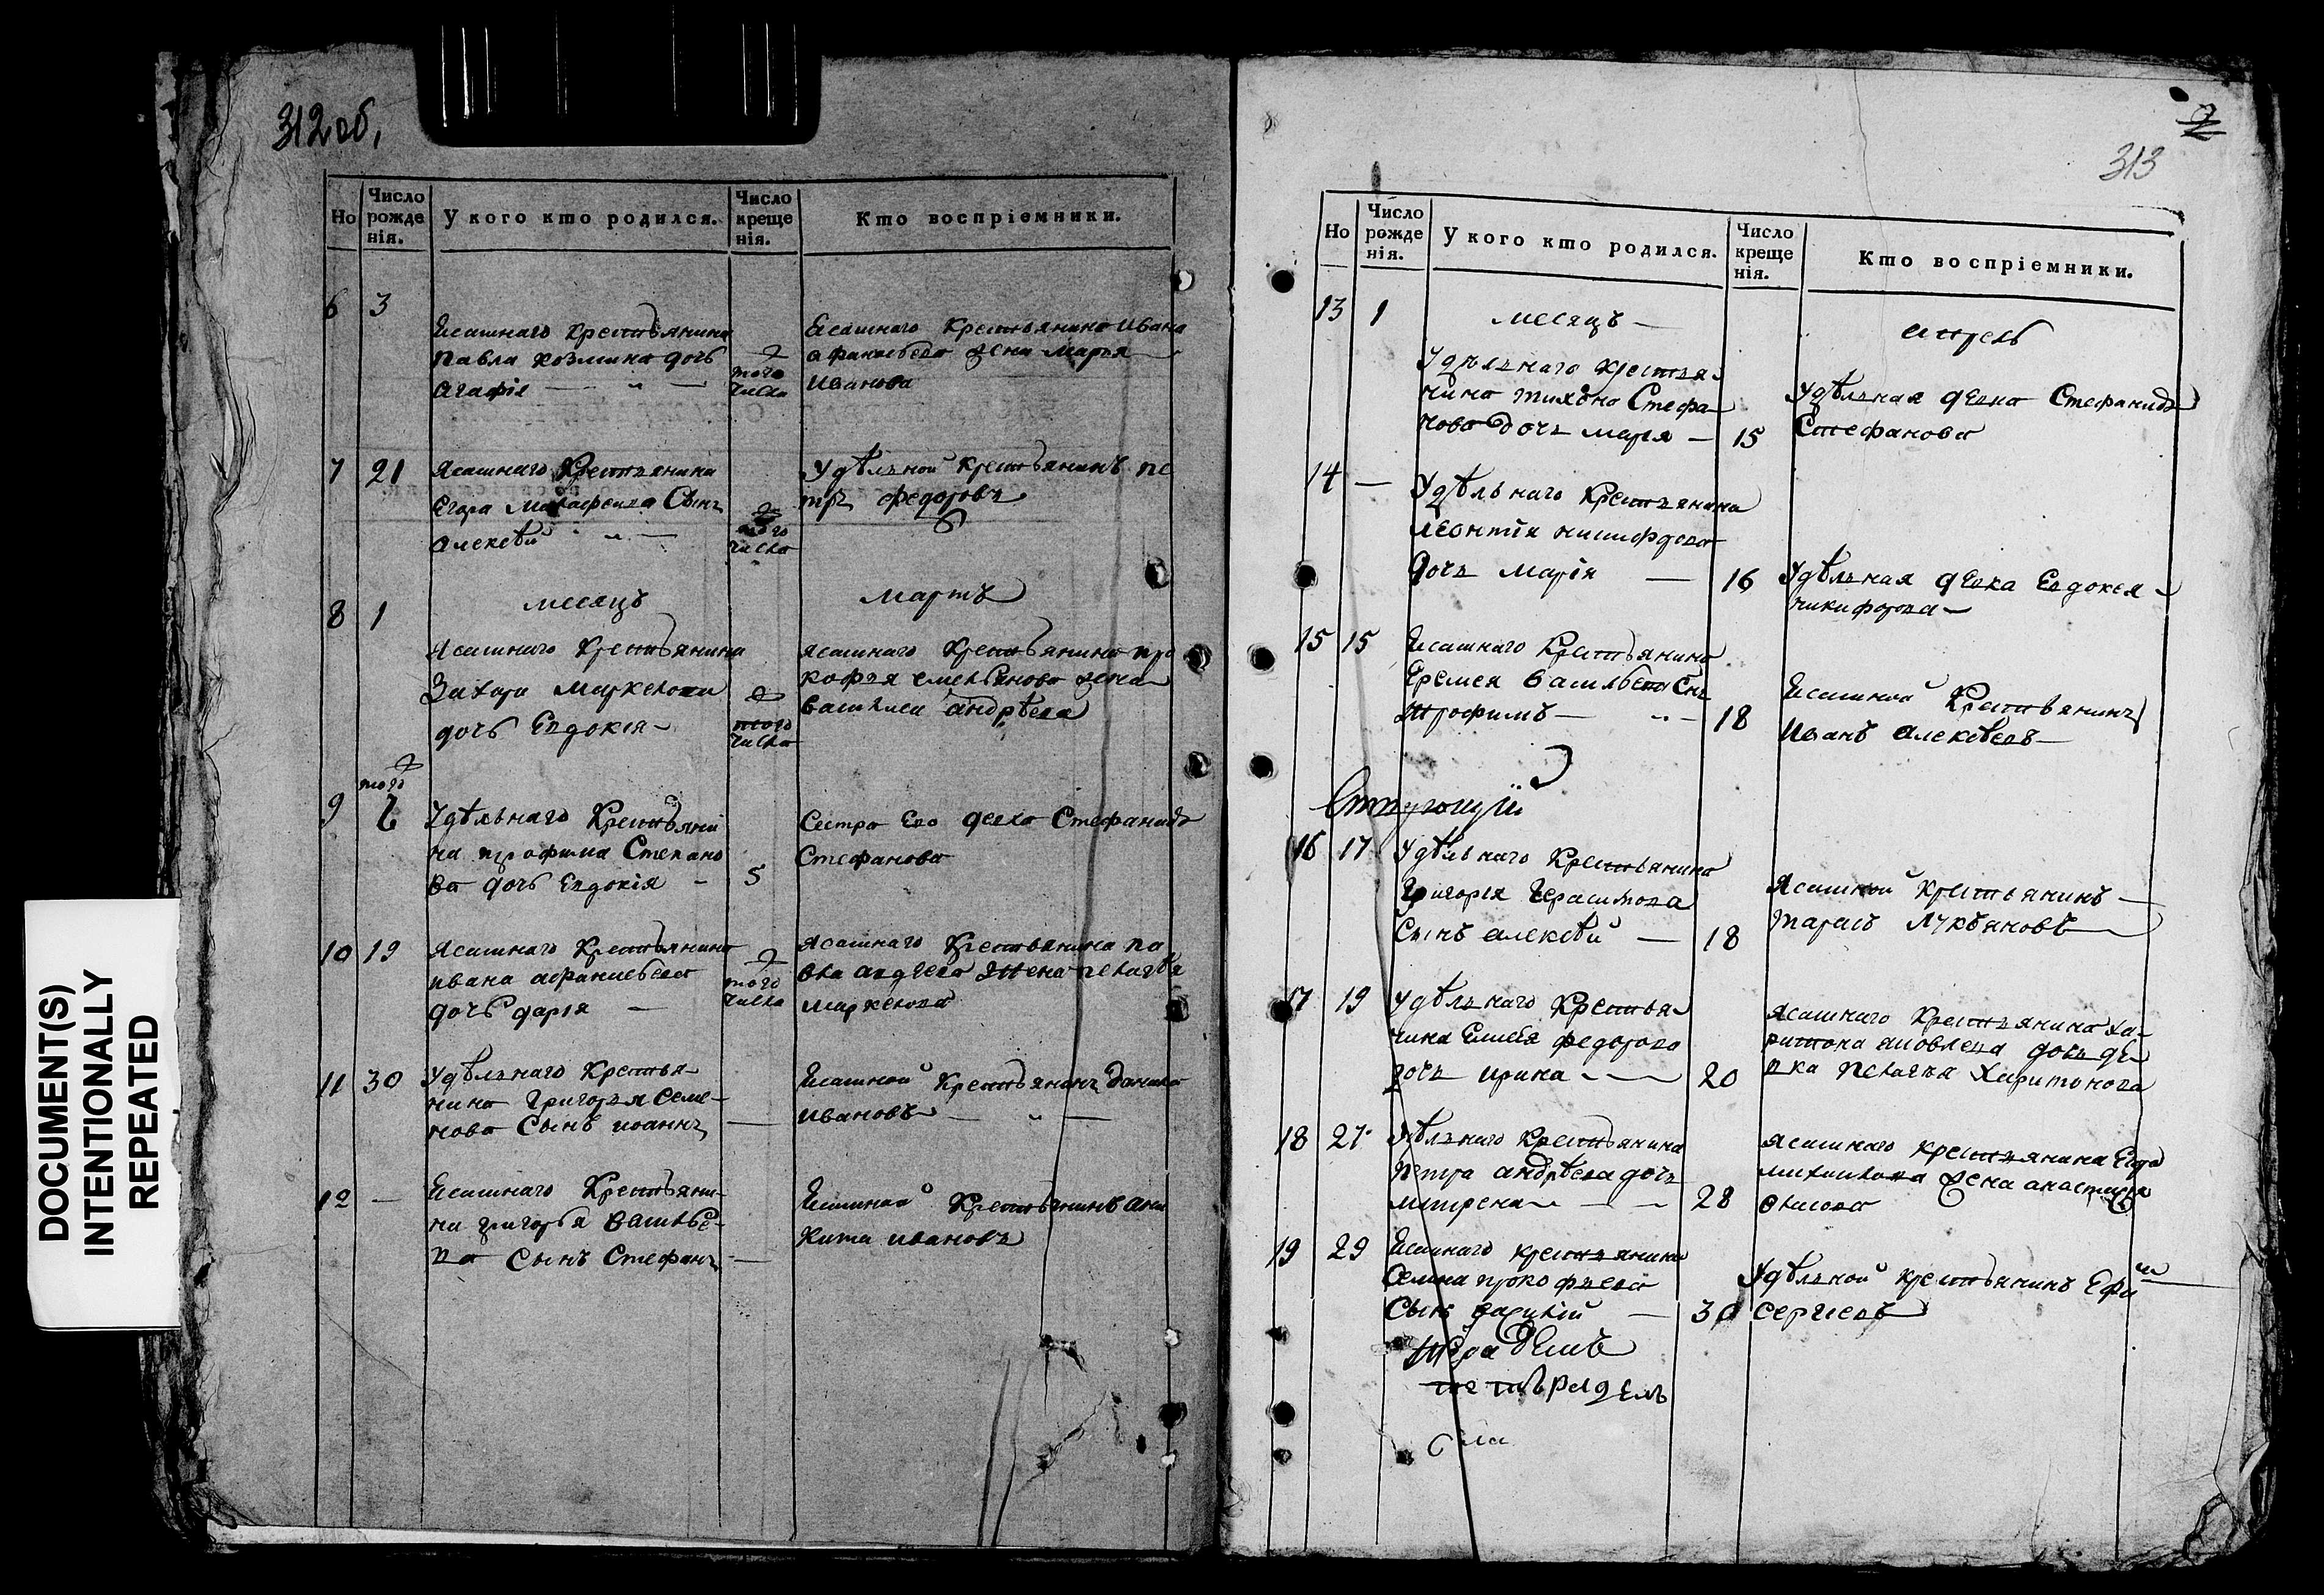 312 об.
Но
Число рожде нія.
У кого кто родился.
Число креще нія.
Кто воспріемники.
6 3
Ясашнаго Крестьянина
Павла козмина дочь
Агафія
того числа
Ясашнаго Крестьянина Ивана
афанасьева жена Марья
Иванова
7 21
Ясашнаго Крестьянина
Егора Сынъ
алексѣй
того числа
Удѣльной крестьянинъ пе
тръ федоровъ
месяцъ мартъ
8 1
Ясашнаго Крестьянина
Захара Маркелова
дочь Евдокія
того числа
ясашнаго Крестьянина про
кофья емельянова жена
василиса андрѣева
9 того
Удѣльнаго Крестьяни
на трофима Степано
ва дочь Евдокія 5
Сестра Его девка Стефанида
Стефанова
10 19
Ясашнаго Крестьянина
ивана афанасьева
дочь дарія
того числа
Ясашнаго Крестьянина па
вла жена пелагѣя
маркелова
11 30
Удѣльнаго Крестья
нина Григорья Семе
нова Сынъ иоаннъ
Ясашной Крестьянинъ Данила
Ивановъ
12
Ясашнаго Крестьяни
на григорья василье
ва Сынъ Стефанъ
Ясашной Крестьянинъ Ани
кита ивановъ
DOCUMENT(S)
INTENTIONALLY
REPEATED
2
313
Но
Число рожде нія.
У кого кто родился.
Число креще нія.
Кто воспріемники.
13 1
месяцъ апрель
Удѣльнаго крестья
нина тихона Стефа
нова дочь марія 15
Удѣльная девка Стефанида
Стефанова
14
Удѣльнаго Крестьянина
леонтія никифорова
дочь Марія 16
Удѣльная девка Евдокея
никифорова
15 15
Ясашнаго Крестьянина
Еремея васильева Снъ
трофимъ 18
Ясашной Крестьянинъ
Иванъ алексѣевъ
16 17
Удѣльнаго Крестьянина
Григорья Герасимова
Сынъ алексѣй 18
Ясашной Крестьянинъ
тарасъ Лукьяновъ
17 19
Удѣльнаго Крестья
нина Елисѣя федорова
дочь ирина 20
Ясашнаго Крестьянина ха
ритона яковлева дочь де
вка пелагея Харитонова
18 27
Удѣльнаго Крестьянина
петра андрѣева дочь
митрена 28
Ясашнаго крестьянина Егора
михайлова жена анастасья
19 29
Ясашнаго крестьянина
Семина прокофьева
Сынъ василій 30
Удѣльной крестьянинъ Ефим
сергиевъ